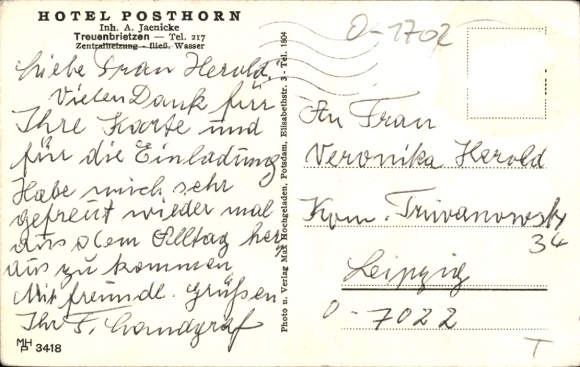 HOTEL POSTHORN
Inh. A. Jaenicke
Treuenbrietzen — Tel. 217
Zentralheizung - fließ. Wasser
Liebe Frau Herold,
Vielen Dank für
Ihre Karte und
für die Einladung
Habe mich sehr
gefreut wieder mal
aus dem Alltag her
aus zu kommen
Mit freundl. Grüßen
Ihr F. Landgraf
MH P 3418
Photo u. Verlag Max Hochgeladen, Potsdam, Elisabethstr. 3 - Tel. 1804
O-1702
An Frau
Veronika Herold
Kom. Triwanowsk
34
Leipzig
O-7022
T